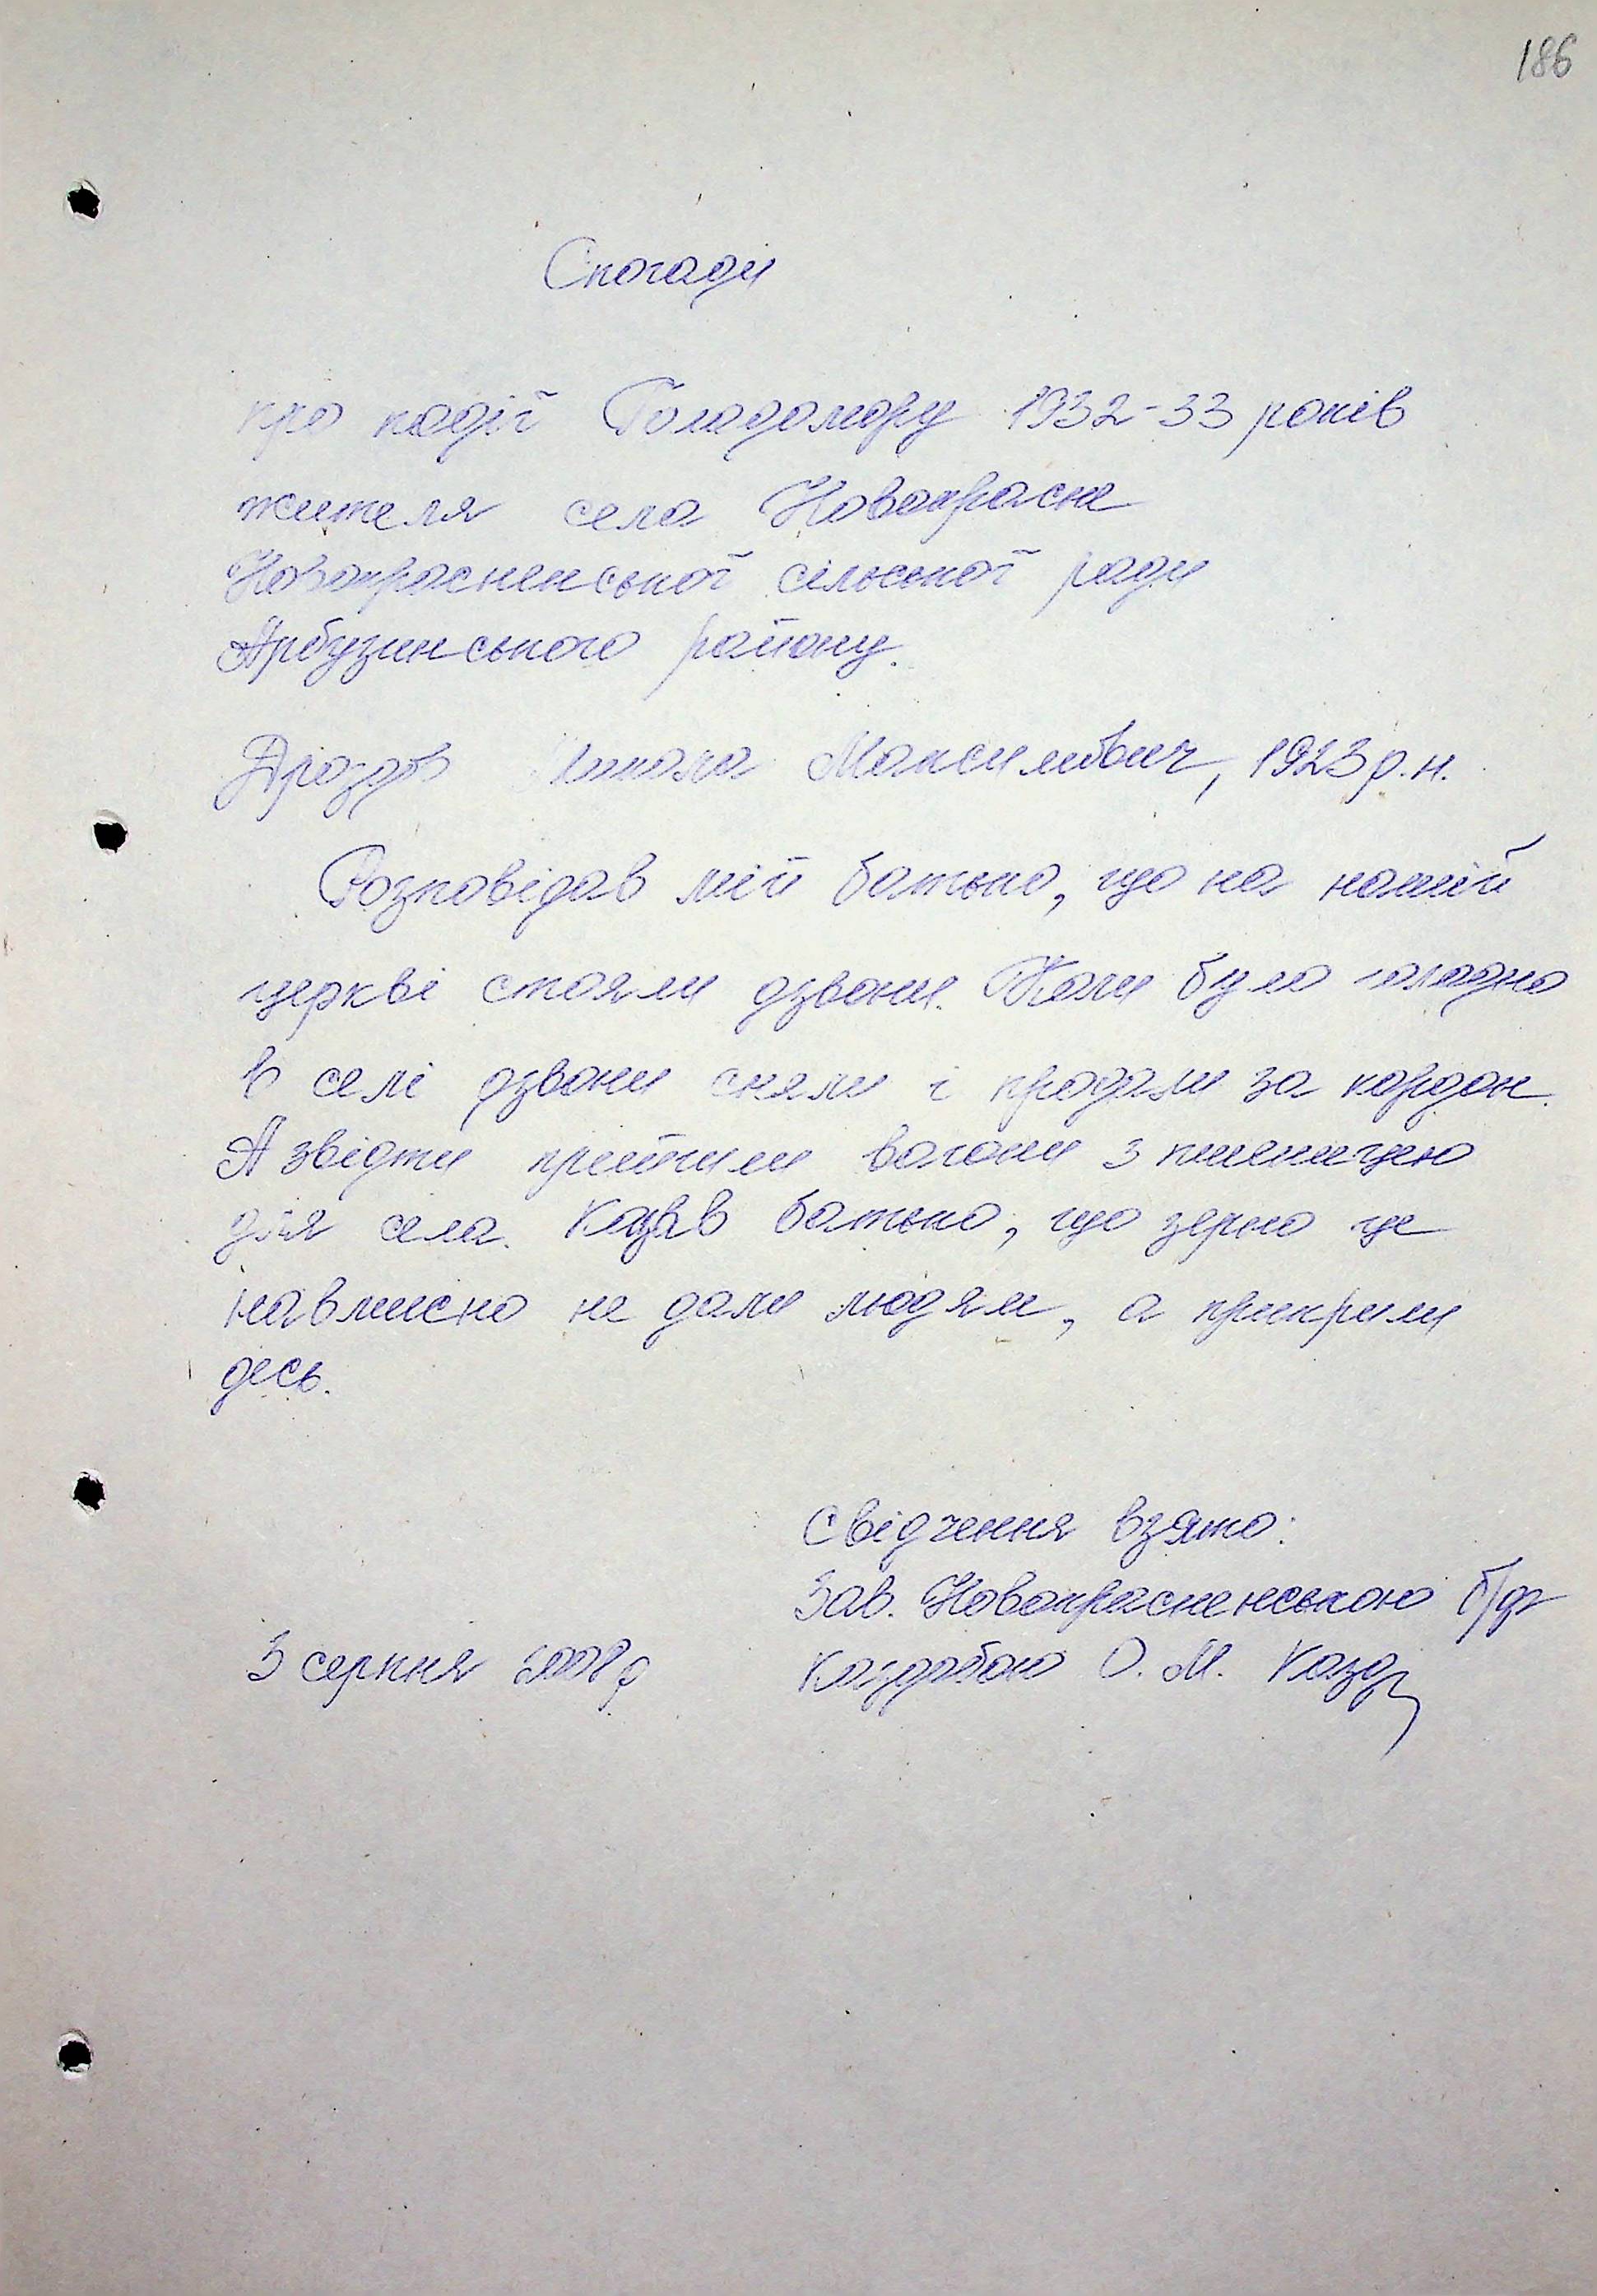 186
Спогади
про події Голодомору 1932-33 років
жителя села Новокрасне
Новокрасненської сільської ради
Арбузинського району.
Дроздов Микола Максимович, 1923 р.н.
Розповідав мій батько, що на нашій
церкві стояли дзвони. Коли було голодно
в селі дзвони сняли і продали за кордон.
А звідти прийшли вагони з пшеницею
для села. Казав батько, що зерно це
навмисно не дали людям, а прикрили
десь.
Свідчення взято:
Зав. Новокрасненською б/ф
3 серпня 2008 р О. М.